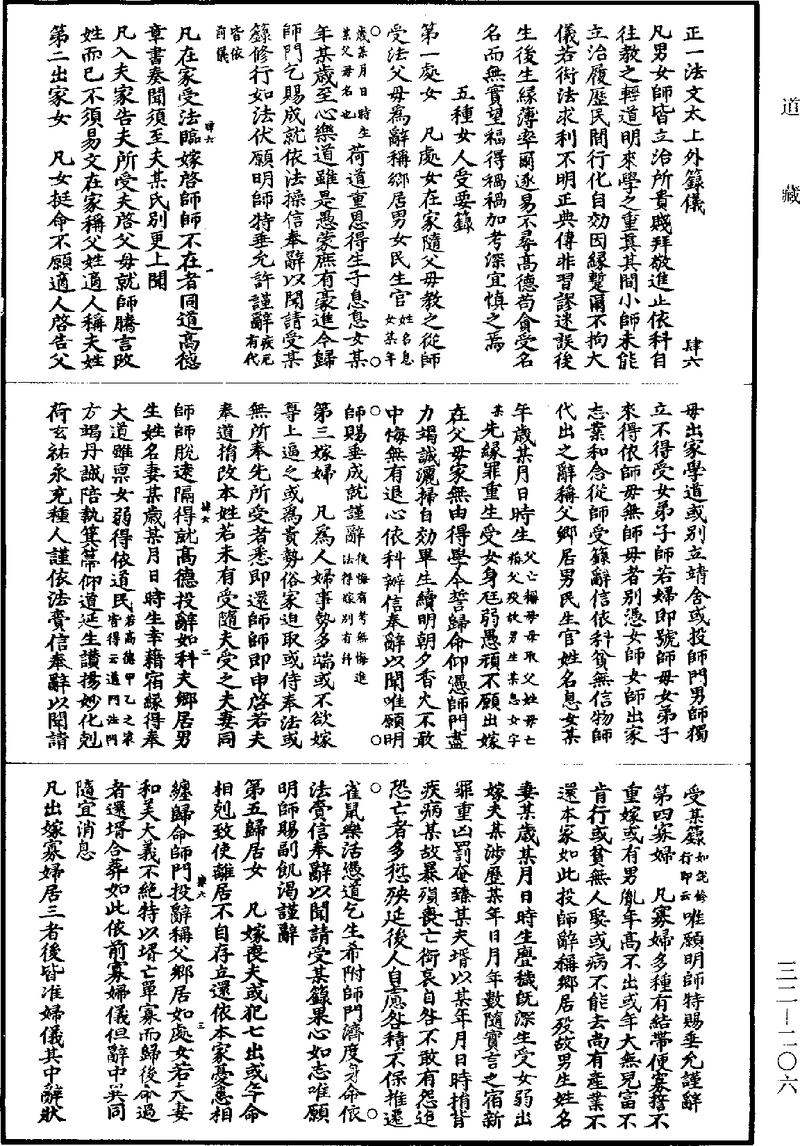 道藏
正一法文太上外籙儀
肆六
凡男女師皆立治所貴賤拜敬進止依科自
往教之輕道明來學之重真其間小師未能
立治履歷民間行化自効因緣蹔爾不拘大
儀若衒法求利不明正典傳非習謬迷誤後
生後生緣薄率爾逐易不尋高德苟貪受名
名而無實望福得禍禍加考深宜慎之焉
五種女人受要籙
第一處女 凡處女在家隨父母教之從師
受法父母爲辭稱鄉居男女民生官姓名息女某年
歲某月日時生某父母名也荷道重恩得生子息息女某
年某歲至心樂道雖是愚蒙庶有豪進今歸
師門乞賜成就依法操信奉辭以聞請受某
籙修行如法伏願明師特垂允許謹辭疾厄有代皆依
前儀
凡在家受法臨嫁啓師師不在者同道高德
章書奏聞須至夫某氏別更上聞
凡入夫家告夫所受夫啓父母就師騰言改
姓而已不須易文在家稱父姓適人稱夫姓
第二出家女 凡女挺命不願適人啓告父
肆六
一
母出家學道或別立靖舍或投師門男師獨
立不得受女弟子師若婦即號師母女弟子
來得依師母無師母者別憑女師女師出家
志業和合從師受籙辭信依科貧無信物師
代出之辭稱父鄉居男民生官姓名息女某
年歲某月日時生父亡稱母母取父姓母亡指父歿故男生某息女字
某先緣罪重生受女身尫弱愚頑不願出嫁
在父母家無由得學今誓歸命仰憑師門盡
力竭誠灑掃自効畢生續明朝夕香火不敢
中悔無有退心依科辦信奉辭以聞唯願明
師賜垂成就謹辭後悔有考無悔進法得嫁別有科
第三嫁婦 凡爲人婦事勢多端或不欲嫁
尊上逼之或爲貴勢俗家迫取或侍奉法或
無所奉先所受者悉即還師師即申啓若夫
奉道指改本姓若未有受隨夫受之夫妻同
師師脫遠隔得就高德投辭如科夫鄉居男
生姓名妻某歲某月日時生幸藉宿緣得奉
大道雖稟女弱得依道民若高德甲乙之家皆得云道門法門
方竭丹誠陪執箕箒仰道延生讚揚妙化剋
荷玄祐永充種人謹依法賫信奉辭以聞請
肆六
二
受某籙如說修行即云唯願明師特賜垂允謹辭
第四寡婦 凡寡婦多種有結帶便寡誓不
重嫁或有男胤年高不出或年大無兒富不
肯行或貧無人娶或病不能去尚有產業不
還本家如此投師辭稱鄉居歿故男生姓名
妻某歲某月日時生舋穢既深生受女弱出
嫁夫某涉歷某年日月年數隨實言之宿新
罪重凶罰奄臻某夫壻以某年月日時捐背
疾病某故暴殞喪亡銜哀自咎不敢有怨追
恐亡者多愆殃延後人自慮咎積不保推遷
雀鼠樂活憑道乞生希附師門濟度身命依
法賫信奉辭以聞請受某籙果心如志唯願
明師賜副飢渴謹辭
第五歸居女 凡嫁喪夫或犯七出或午命
相剋致使離居不自存立還依本家憂患相
纏歸命師門投辭稱父鄉居如處女若夫妻
和美大義不絕特以壻亡單寡而歸後命過
者還壻合葬如此依前寡婦儀但辭中異同
隨宜消息
凡出嫁寡婦居三者後皆准婦儀其中辭狀
肆六
三
三二—二〇六